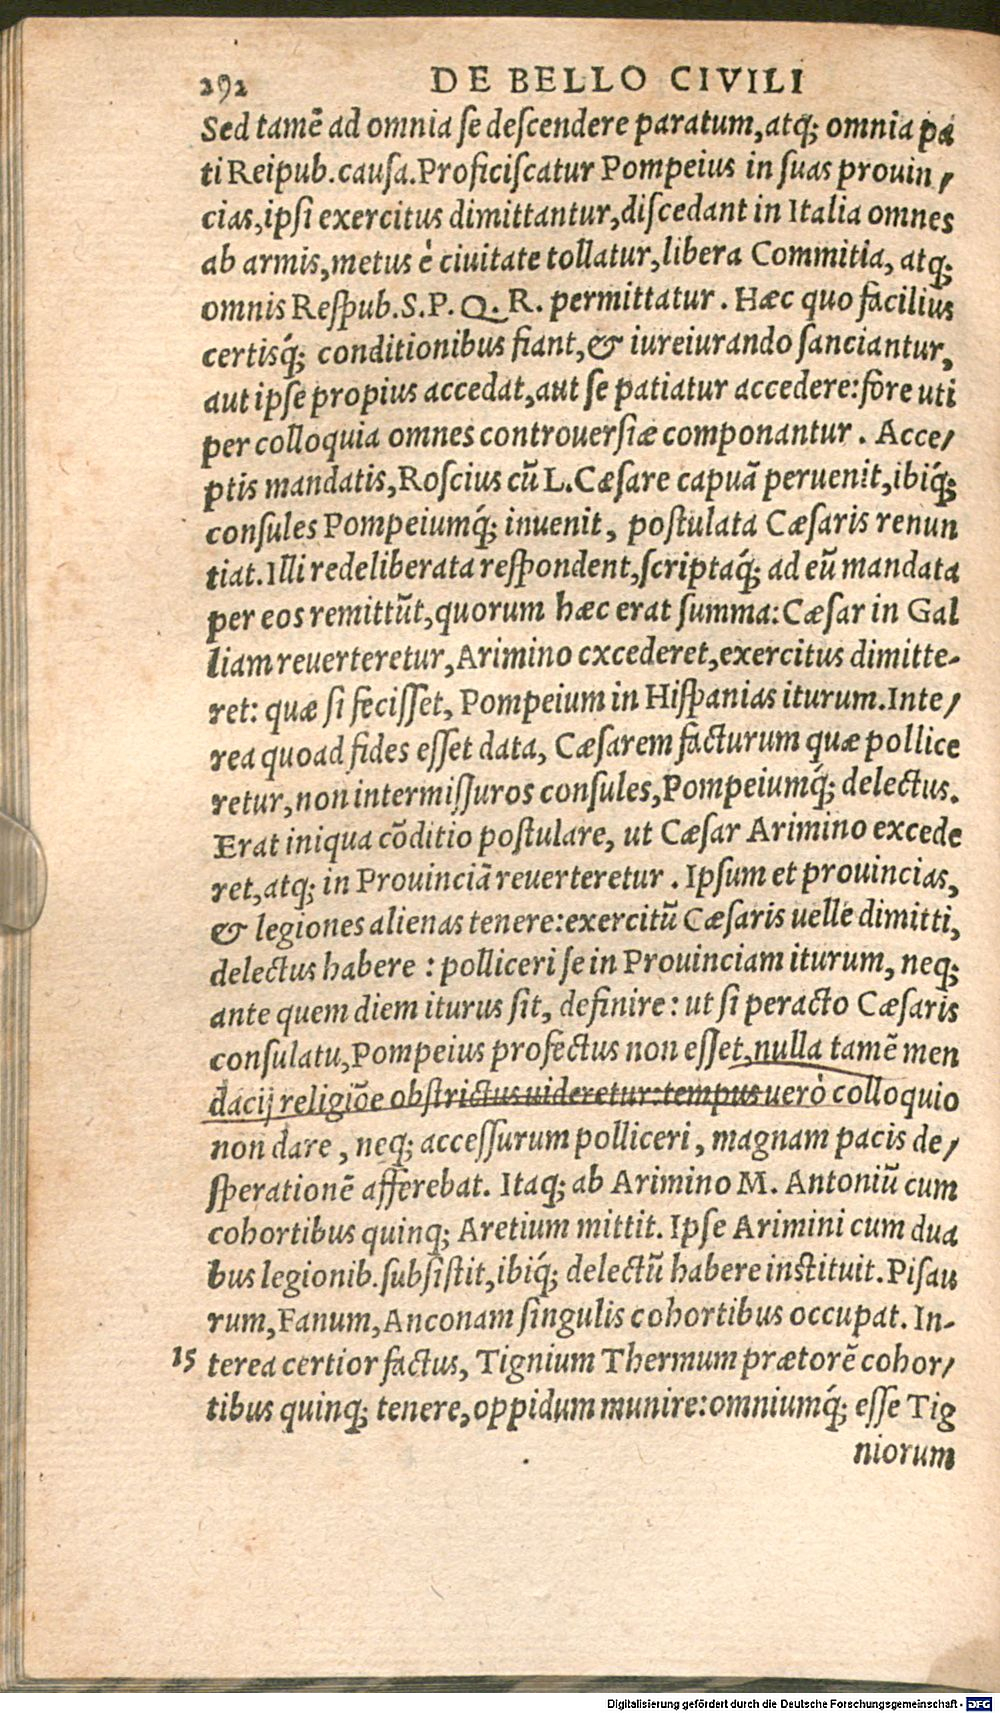 292 DE BELLO CIVILI
Sed tamē ad omnia se descendere paratum, atq; omnia pa
ti Reipub. causa. Proficiscatur Pompeius in suas prouin/
cias, ipsi exercitus dimittantur, discedant in Italia omnes
ab armis, metus è ciuitate tollatur, libera Commitia, atq;
omnis Respub. S. P. Q. R. permittatur. Hæc quo facilius
certisq́; conditionibus fiant, & iureiurando sanciantur,
aut ipse propius accedat, aut se patiatur accedere: fore uti
per colloquia omnes controuersiæ componantur. Acce/
ptis mandatis, Roscius cū L. Cæsare capuā peruenit, ibiq́;
consules Pompeiumq́; inuenit, postulata Cæsaris renun
tiat. Illi redeliberata respondent, scriptaq́; ad eū mandata
per eos remittūt, quorum hæc erat summa: Cæsar in Gal
liam reuerteretur, Arimino cxcederet, exercitus dimitte-
ret: quæ si fecisset, Pompeium in Hispanias iturum. Inte/
rea quoad fides esset data, Cæsarem facturum quæ pollice
retur, non intermissuros consules, Pompeiumq́; delectus.
Erat iniqua cōditio postulare, ut Cæsar Arimino excede
ret, atq; in Prouinciā reuerteretur. Ipsum et prouincias,
& legiones alienas tenere: exercitū Cæsaris uelle dimitti,
delectus habere: polliceri se in Prouinciam iturum, neq;
ante quem diem iturus sit, definire: ut si peracto Cæsaris
consulatu, Pompeius profectus non esset, nulla tamē men
dacij religiōe obstrictus uideretur: tempus uerò colloquio
non dare, neq; accessurum polliceri, magnam pacis de/
sperationē afferebat. Itaq; ab Arimino M. Antoniū cum
cohortibus quinq; Aretium mittit. Ipse Arimini cum dua
bus legionib. subsistit, ibiq́; delectū habere instituit. Pisau
rum, Fanum, Anconam singulis cohortibus occupat. In-
15 terea certior factus, Tignium Thermum prætorē cohor/
tibus quinq; tenere, oppidum munire: omniumq́; esse Tig
niorum
Digitalisierung gefördert durch die Deutsche Forschungsgemeinschaft - DFG